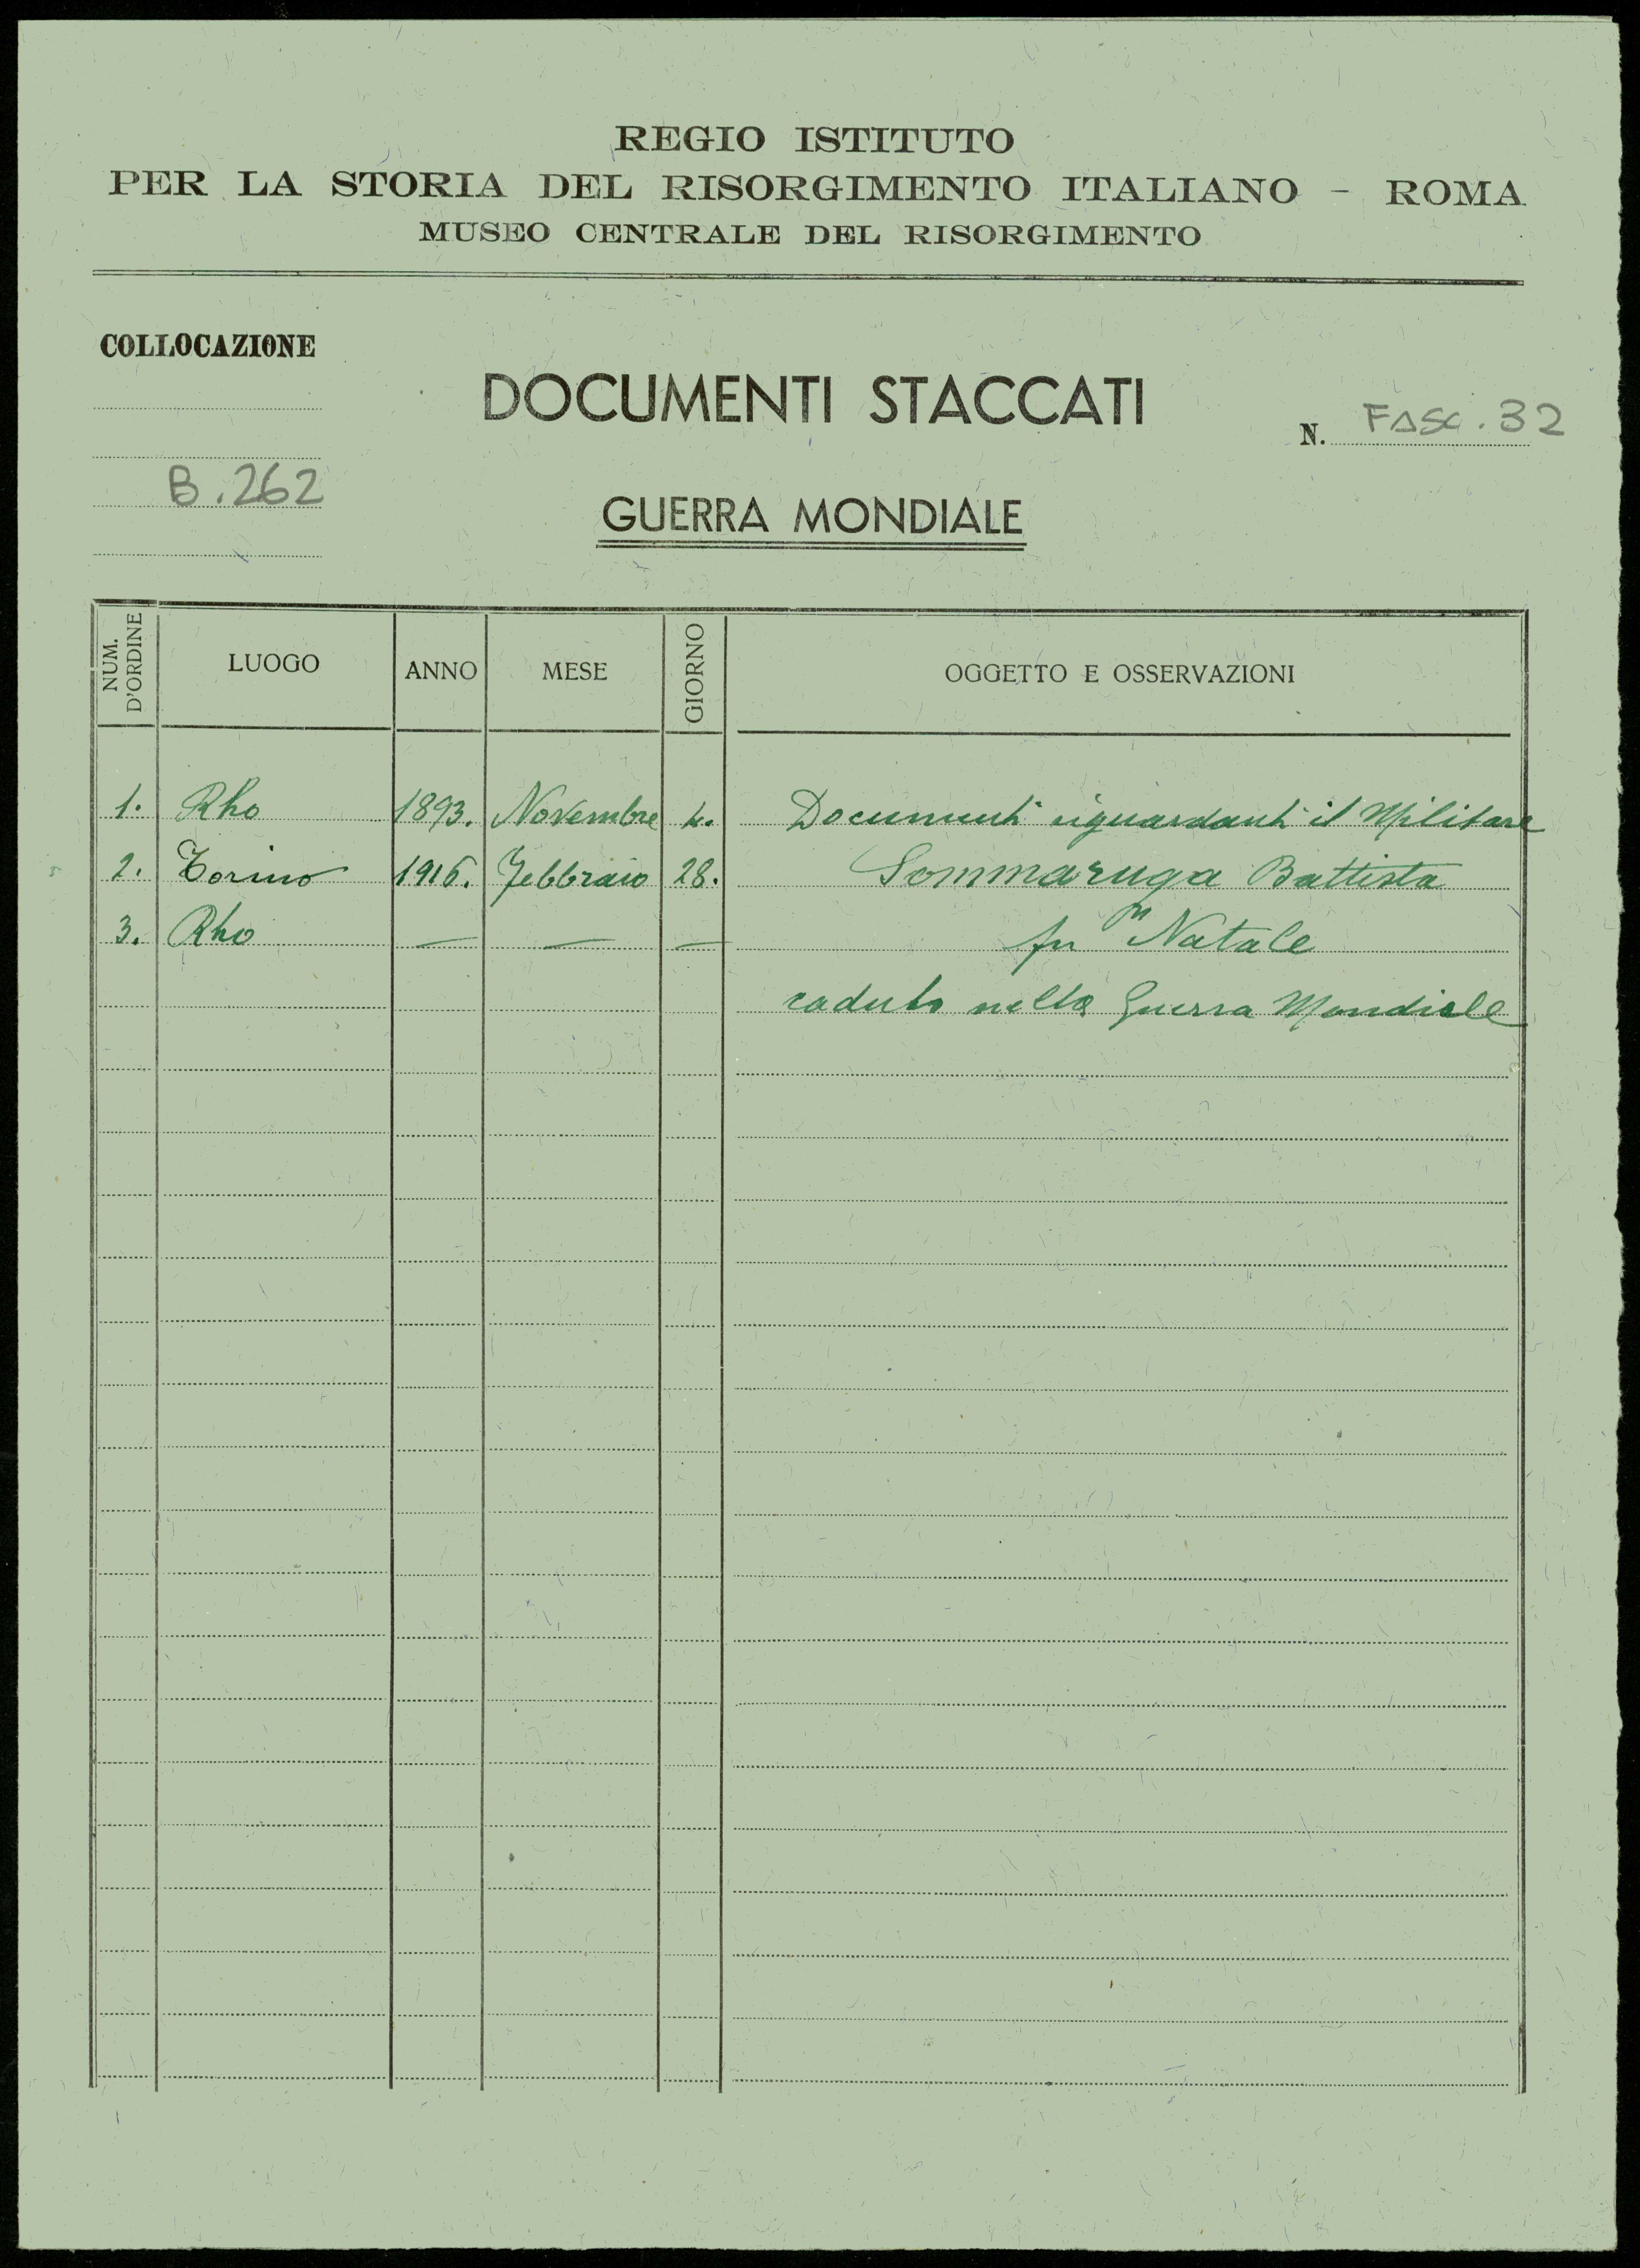 REGIO ISTITUTO
PER LA STORIA DEL RISORGIMENTO ITALIANO - ROMA
MUSEO CENTRALE DEL RISORGIMENTO
COLLOCAZIONE
DOCUMENTI STACCATI
N. FASC. 32
B. 262
GUERRA MONDIALE
NUM. D'ORDINE LUOGO ANNO MESE GIORNO OGGETTO E OSSERVAZIONI
1. Rho 1893. Novembre 4. Documenti riguardanti il Militare
2. Torino 1916. Febbraio 28. Sommaruga Battista
3. Rho — — — fu Natale
caduto nella Guerra Mondiale